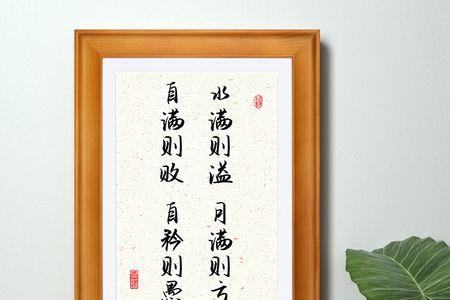 水满则溢 月满则亏
自满则败 自矜则愚